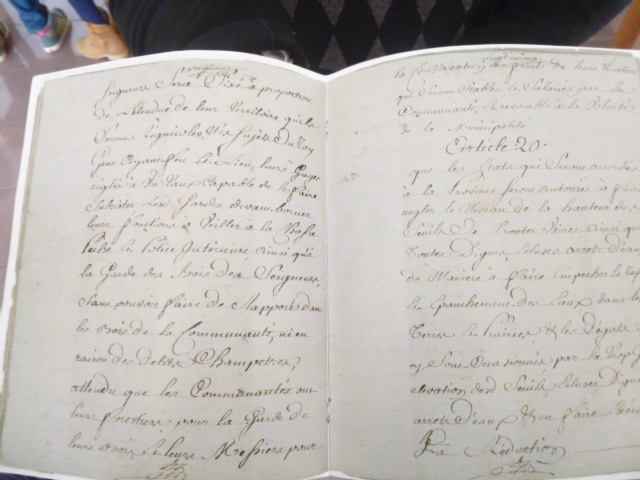 Seigneurs Sera Fixé à proportion
de L'étendue de leur Territoire qu'ils
Seront Régnicoles, Nés Sujets Du Roy
Gens ayant feu Lieu, leurs Gages
réglés à Un Taux Capable de les faire
Subsister Gardes devant borner
leurs fonctions à Veiller à la Chasse
Pêche & Police Intérieure ainsi qu'à
la Garde des Bois des Seigneurs,
Sans pouvoir faire de Rapports dans
les bois de la Communauté, ni en
raison des délits Champetres,
attendu que les Communautés ont
leurs forestiers pour la Garde de
leurs bois, & leurs Messiers pour
la Conservation des fruits de leurs
qui Seront Salariés par la
Communauté, Revocable à la Volonté
de la Municipalité
Article 20.
que les Etats qui Seront accordés
à la Province Seront autorisés à faire
régler le Niveau de la hauteur des
Seuils De toutes Usines ainsi que
Toutes Digues Ecluses arrêt d'eau
de Maniere à faire empecher le
Epanchement des Eaux dans les
Terres & Prairies & les Dégats
y Sont Occasionnés par la trop
elevation desd Seuils Ecluses Digues
arrets d'eau & en faire
La Réduction